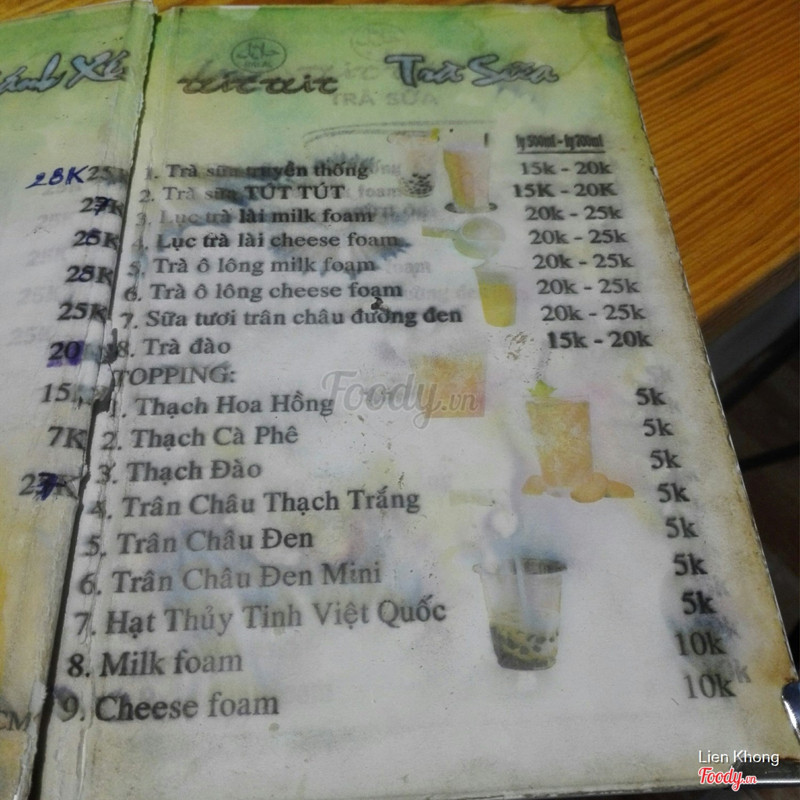 ánh Xè
28K 25K
27K
26K
25K
25K
20
15
7K
27K
CM
tút tút Trà Sữa
TRÀ SỮA
ly 500ml - ly 700ml
1. Trà sữa truyền thống 15k - 20k
2. Trà sữa TÚT TÚT 15K - 20K
3. Lục trà lài milk foam 20k - 25k
4. Lục trà lài cheese foam 20k - 25k
5. Trà ô lông milk foam 20k - 25k
6. Trà ô lông cheese foam 20k - 25k
7. Sữa tươi trân châu đường đen 20k - 25k
8. Trà đào 15k - 20k
TOPPING:
1. Thạch Hoa Hồng 5k
2. Thạch Cà Phê 5k
3. Thạch Đào 5k
4. Trân Châu Thạch Trắng 5k
5. Trân Châu Đen 5k
6. Trân Châu Đen Mini 5k
7. Hạt Thủy Tinh Việt Quốc 5k
8. Milk foam 10k
9. Cheese foam 10k
Foody.vn
Lien Khong
Foody.vn